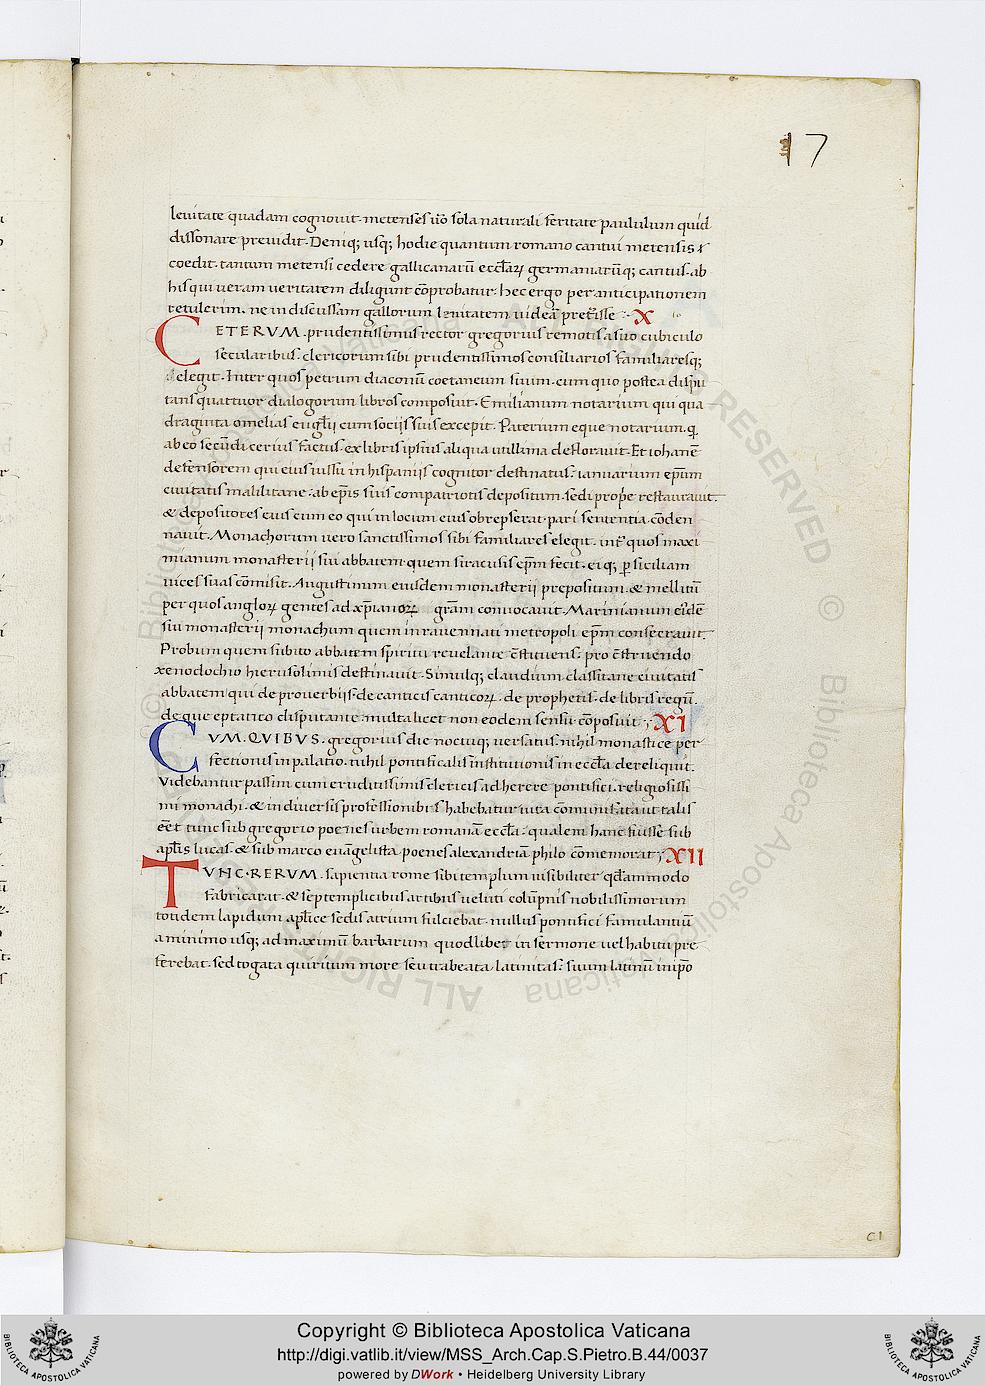 17
leuitate quadam cognouit. metenses ũo sola naturali feritate paululum quid
dissonare preuidit. Deniq; usq; hodie quantum romano cantui metensis
cedit. tantum metensi cedere gallicanarũ eccl̃aꝝ germaniarũq; cantus. ab
his qui ueram ueritatem diligunt cõprobatur. hec ergo per anticipationem
retulerim. ne indiscussam gallorum leuitatem uidear preterisse. X
CETERVM. prudentissimus rector gregorius remotis a suo cubiculo
secularibus. clericorum sibi prudentissimos consiliarios familiaresq;
elegit. Inter quos petrum diaconũ coetaneum suum. cum quo postea dispu
tans quattuor dialogorum libros composuit. Emilianum notarium qui qua
draginta omelias euglĩj cum socijs suis excepit. Paterium eque notarium. q
ab eo secũdicerius factus. ex libris ipsius aliqua utillima deflorauit. Et iohanẽ
defensorem qui eius iussu in hispanijs cognitor destinatus. ianuarium ep̃um
ciuitatis malilitane. ab ep̃is suis compatriotis depositum. sedi prop̃e restaurauit.
& depositores eius cum eo qui in locum eius obrepserat. pari sententia cõden
nauit. Monachorum uero sanctissimos sibi familiares elegit. int̃ quos maxi
mianum monasterij sui abbatem. quem siracusis ep̃m fecit. eiq; ꝑ siciliam
uices suas cõmisit. Augustinum eiusdem monasterij prepositum. & mellitũ
per quos angloꝝ gentes ad xp̃ianoꝝ grãm conuocauit. Marinianum eiusdẽ
sui monasterij monachum quem in rauennati metropoli ep̃m consecrauit.
Probum quem subito abbatem spiritu reuelante cõstituens. pro cõstruendo
xenodochio hierusolimis destinauit. Simulq; claudium classitane ciuitatis
abbatem qui de prouerbijs. de canticis canticoꝝ. de prophetis. de libris regũ.
de que eptatico disputante. multa licet non eodem sensu cõposuit. XI
CVM. QVIBVS. gregorius die noctuq; uersatus. nihil monastice per
fectionis in palatio. nihil pontificalis institutionis in eccl̃a dereliquit.
Videbantur passim cum eruditissimis clericis adherere pontifici. religiosissi
mi monachi. & in diuersis professionibus habebatur uita cõmunis. ita ut talis
eẽt tunc sub gregorio poenes urbem romanã eccl̃a. qualem hanc fuisse sub
apl̃is lucas. & sub marco euãgelista poenes alexandriã philo cõmemorat. XII
TVNC. RERVM. sapientia rome sibi templum uisibiliter qd̃ammodo
fabricarat. & septemplicibus artibus ueluti colũpnis nobilissimorum
totidem lapidum apl̃ice sedis atrium fulciebat. nullus pontifici famulantiũ
a minimo usq; ad maximũ barbarum quodlibet in sermone uel habitu pre
ferebat. sed togata quiritum more seu trabeata latinitas. suum latiũ in ip̃o
C1
Copyright © Biblioteca Apostolica Vaticana
http://digi.vatlib.it/view/MSS_Arch.Cap.S.Pietro.B.44/0037
powered by DWork • Heidelberg University Library